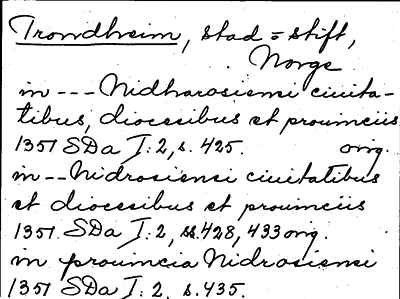 Trondheim, stad = stift,
Norge
in --- Nidharosiensi ciuita-
tibus, diocesibus et prouinciis
1351 SDa I: 2, s. 425. orig.
in -- Nidrosiensi ciuitatibus
et diocesibus et prouinciis
1351. SDa I: 2, ss. 428, 433 orig.
in prouincia Nidrosiensi
1351 SDa I: 2, s. 435.